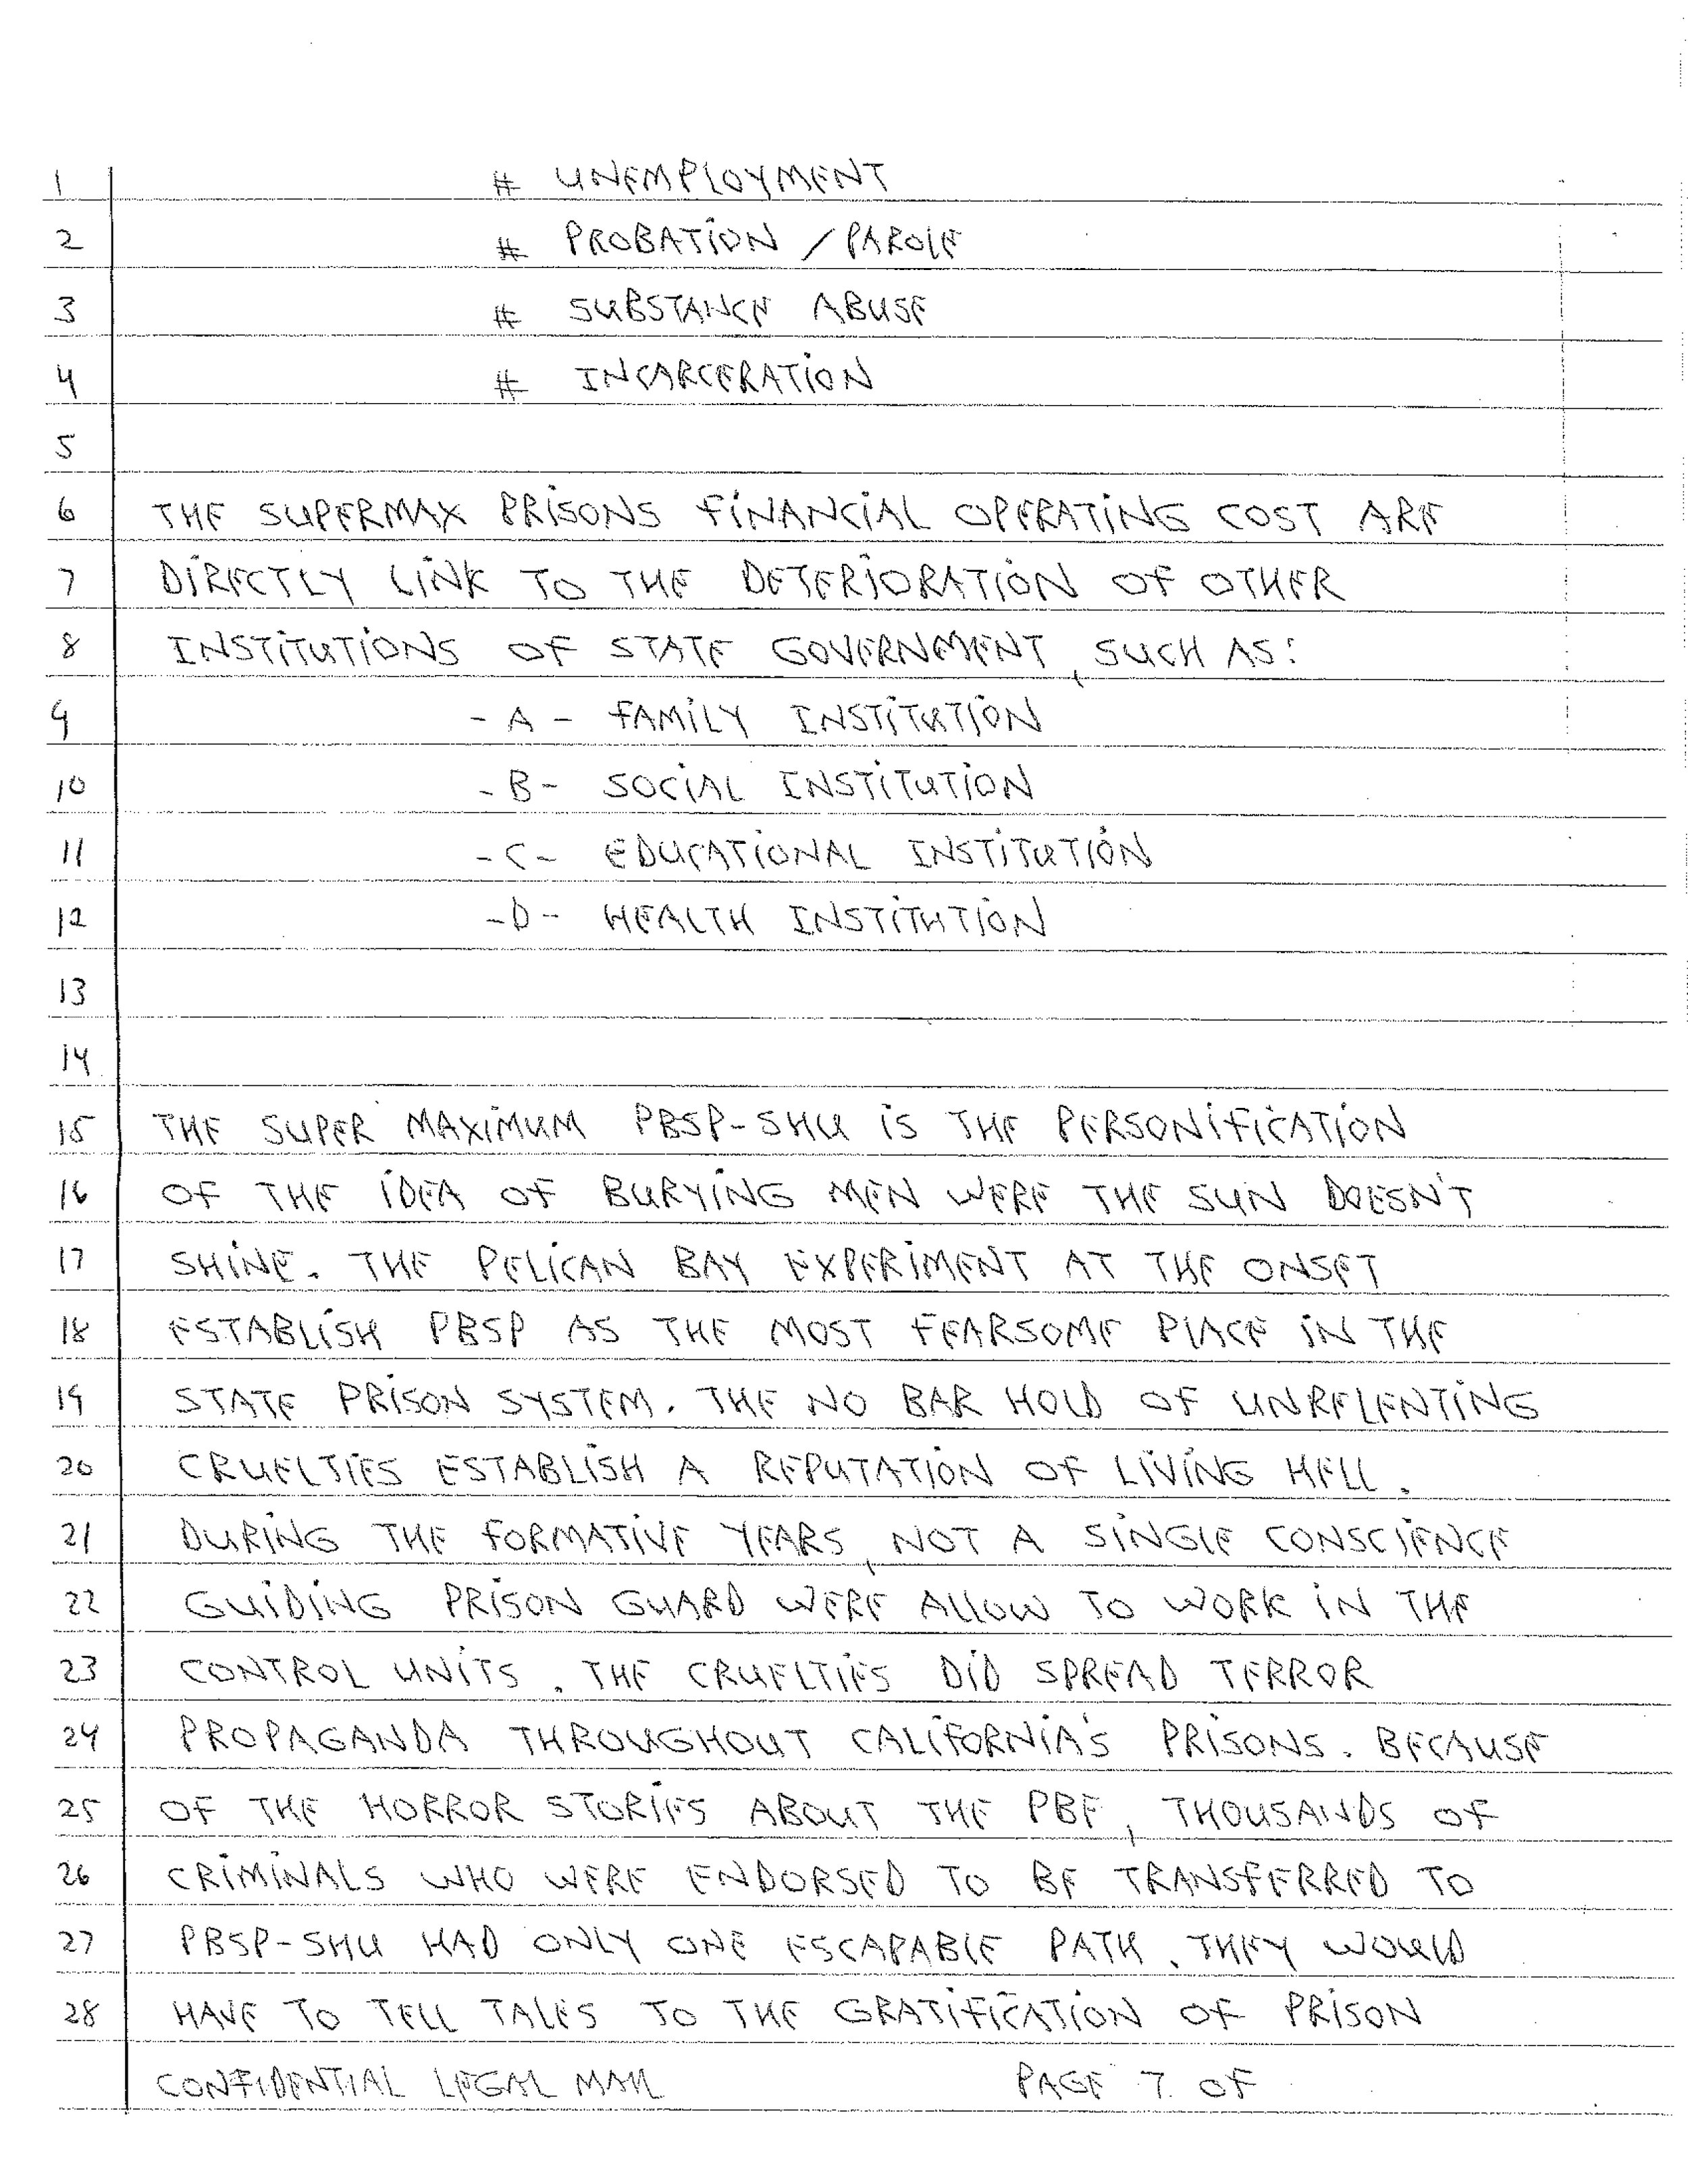 1 # UNEMPLOYMENT
2 # PROBATION / PAROLE
3 # SUBSTANCE ABUSE
4 # INCARCERATION
5
6 THE SUPERMAX PRISONS FINANCIAL OPERATING COST ARE
7 DIRECTLY LINK TO THE DETERIORATION OF OTHER
8 INSTITUTIONS OF STATE GOVERNMENT, SUCH AS:
9 - A - FAMILY INSTITUTION
10 - B - SOCIAL INSTITUTION
11 - C - EDUCATIONAL INSTITUTION
12 - D - HEALTH INSTITUTION
13
14
15 THE SUPER MAXIMUM PBSP-SHU IS THE PERSONIFICATION
16 OF THE IDEA OF BURYING MEN WERE THE SUN DOESN'T
17 SHINE. THE PELICAN BAY EXPERIMENT AT THE ONSET
18 ESTABLISH PBSP AS THE MOST FEARSOME PLACE IN THE
19 STATE PRISON SYSTEM. THE NO BAR HOLD OF UNRELENTING
20 CRUELTIES ESTABLISH A REPUTATION OF LIVING HELL.
21 DURING THE FORMATIVE YEARS, NOT A SINGLE CONSCIENCE
22 GUIDING PRISON GUARD WERE ALLOW TO WORK IN THE
23 CONTROL UNITS. THE CRUELTIES DID SPREAD TERROR
24 PROPAGANDA THROUGHOUT CALIFORNIA'S PRISONS. BECAUSE
25 OF THE HORROR STORIES ABOUT THE PBE, THOUSANDS OF
26 CRIMINALS WHO WERE ENDORSED TO BE TRANSFERRED TO
27 PBSP-SHU HAD ONLY ONE ESCAPABLE PATH. THEY WOULD
28 HAVE TO TELL TALES TO THE GRATIFICATION OF PRISON
CONFIDENTIAL LEGAL MAIL PAGE 7 OF